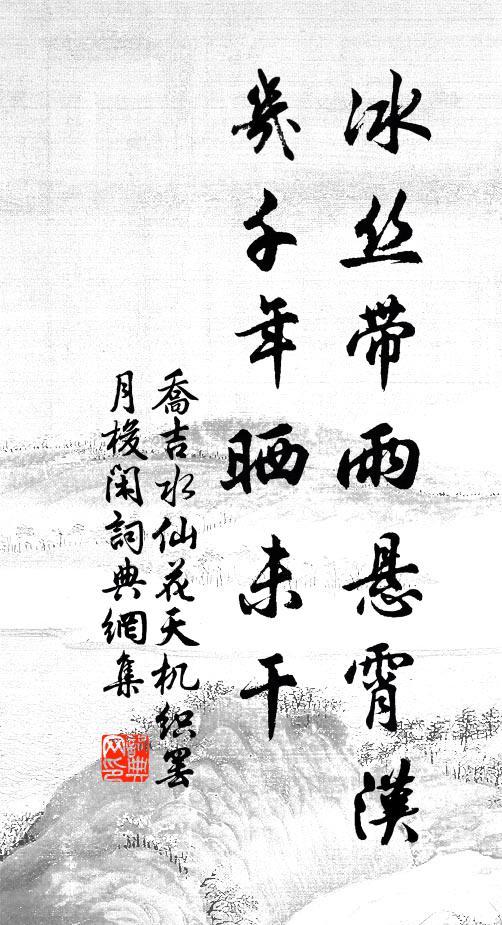 冰丝带雨悬霄汉
几千年晒未干
喬吉水仙花天机织罢
月梭闲詞典網集
詞典
网印